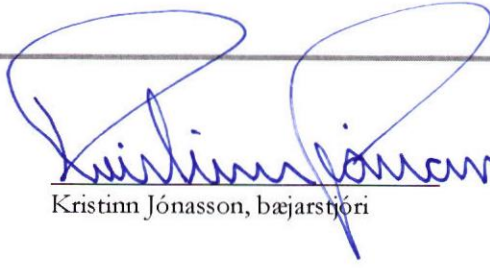 Kristinn Jónasson
Kristinn Jónasson, bæjarstjóri